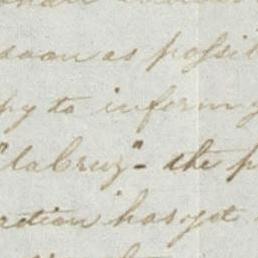 soon as possi
py to inform
"la Cruz" - the p
ction has got